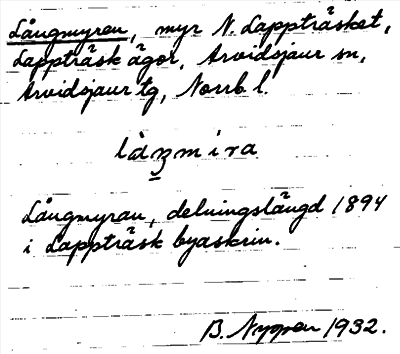 Långmyren, myr N. Lappträsket,
Lappträsk ägor, Arvidsjaur sn,
Arvidsjaur tg, Norrb. l.
Långmyran, delningslängd 1894
i Lappträsk byaskrin.
B. Nygren 1932.